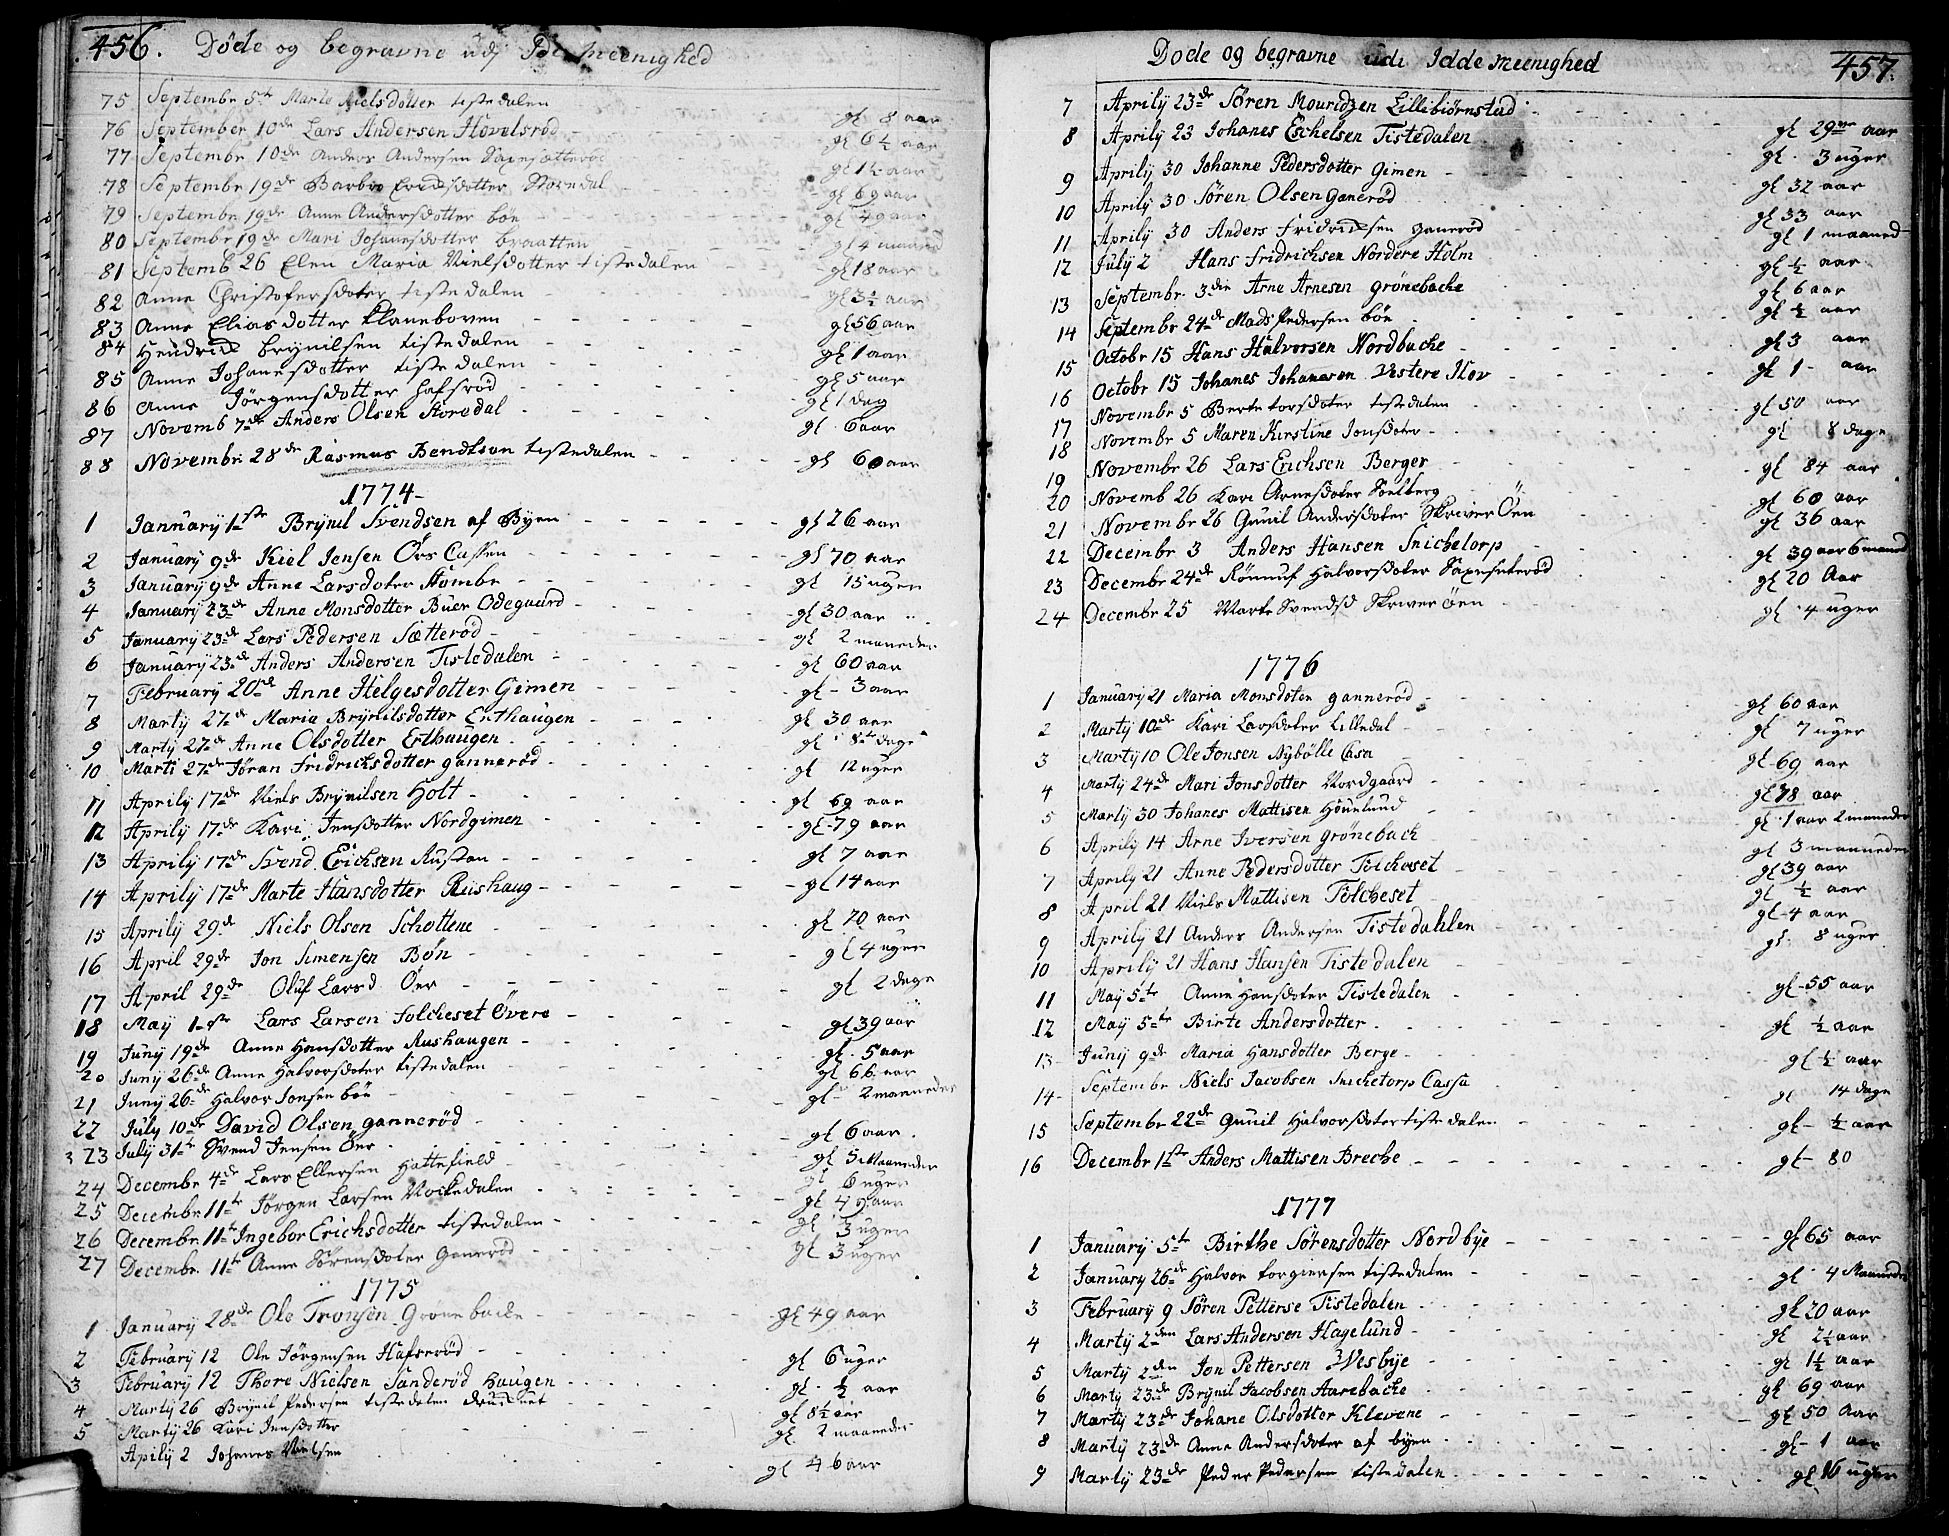 456. Døde og begravne udj Idde meenighed
75 Septembr 5te Marte Nielsdotter tistedalen gl 8 aar
76 September 10de Lars Andersen Hovelsrød gl 6½ aar
77 Septembr 10de Anders Andersen Saxesætterød gl 1½ aar
78 Septembr 19de Barbro Fridsdotter Storedal gl 69 aar
79 Septembr 19de Anne Andersdotter bøn gl 49 aar
80 Septembr 19de Mari Johansdotter braatten gl 4 maaned
81 Septemb 26 Elen Maria Nielsdotter tistedalen gl 18 aar
82 Anne Christofersdoter tistedalen gl 3½ aar
83 Anne Eliasdotter Klaneboven gl 56 aar
84 Hendrich Brynilsen tistedalen gl 1 aar
85 Anne Johanesdotter tistedalen gl 5 aar
86 Anne Jørgensdotter hafsrød gl 1 dag
87 Novemb 7de Anders Olsen Storedal gl 6 aar
88 Novembr 28de Rasmus Bendtson tistedalen gl 60 aar
1774
1 January 1ste Brynil Svendsen af Byen gl 26 aar
2 January 9de Kiel Jensen Örs Cassen gl 70 aar
3 January 9de Anne Larsdoter Hombe gl 15 uger
4 January 23de Anne Monsdotter Buer Odegaard gl 30 aar
5 January 23de Lars Pedersen Sætterød gl 2 maaneder
6 January 23de Anders Andersen Tistedalen gl 60 aar
7 February 20de Anne Helgesdotter Gimen gl 3 aar
8 Marty 27de Maria Brynilsdotter Erthaugen gl 30 aar
9 Marty 27de Anne Olsdotter Erthaugen gl 8te dage
10 Marti 27de Jøran Fridrichsdotter gannerød gl 12 uger
11 Aprily 17de Niels Brynilsen Holt gl 69 aar
12 Aprily 17de Kari Jensdotter Nordgimen gl 79 aar
13 Aprily 17de Svend Erichsen Rustan gl 7 aar
14 Aprily 17de Marte Hansdotter Riishaug gl 14 aar
15 Aprily 29de Niels Olsen Schottene gl 70 aar
16 April 29de Jon Simensen Bøn gl 4 uger
17 April 29de Oluf Larsd Öer gl 2 dage
18 May 1ste Lars Larsen Solcheset Övere gl 39 aar
19 Juny 19de Anne Hansdotter Rushaugen gl 5 aar
20 Juny 26de Anne Halvorsdoter tistedalen gl 66 aar
21 Juny 26de Halvor Jonsen bøn gl 2 maaneder
22 July 10de David Olsen gannerød gl 6 aar
23 July 31te Svend Jensen Öer gl 5 Maaneder
24 Decembr 4de Lars Ellersen Hattefield gl 6 uger
25 Decembr 11te Jørgen Larsen Nockedalen gl 49 aar
26 Decembr 11te Ingebor Erichsdotter tistedalen gl 3 uger
27 Decembr 11te Anne Sørensdoter Ganerød gl 3 uger
1775
1 January 28de Ole Tronsen Grønebacke gl 49 aar
2 February 12 Ole Jørgensen Hafserød gl 6 uger
3 February 12 Thore Nielsen Sanderød haugen gl ½ aar
4 Marty 26 Brynil Pedersen tistedalen druchnet gl 8½ aar
5 Marty 26 Kari Jensdotter gl 2 maaneder
Aprily 2 Johanes Nielsen gl 46 aar
Døde og begravne udi Idde meenighed 457.
7 Aprily 23de Søren Mouridzen Lillebiørnstad gl 29 aar
8 Aprily 23 Johanes Eschelsen Tistedalen gl 3 uger
9 Aprily 30 Johanne Pedersdotter Gimen gl 32 aar
10 Aprily 30 Søren Olsen Ganerød gl 33 aar
11 Aprily 30 Anders Fridrichsen ganerød gl 1 maaned
12 July 2 Hans Fridrichsen Nordere Holm gl ½ aar
13 Septembr 3die Arne Arnesen grønebacke gl 6 aar
14 Septembr 24de Mads Pedersen bøn gl ½ aar
15 Octobr 15 Hans Halvorsen Nordbacke gl 3 aar
16 Octobr 15 Johanes Johanesen Vestere Skov gl 1 aar
17 Novembr 5 Berte torsdoter tistedalen gl 50 aar
18 Novembr 5 Maren Kirstine Jonsdoter gl 8 dage
19 Novembr 26 Lars Erichsen Berger gl 84 aar
20 Novemb 26 Kari Arnesdoter Soelberg gl 60 aar
21 Novembr 26 Gunil Andersdoter Skriver Öen gl 36 aar
22 Decembr 3 Anders Hansen Snichetorp gl 39 aar 6 maaned
23 Decembr 24de Rönnuf Halvorsdoter Saxesæterød gl 20 Aar
24 Decembr 25 Marte Svendsd Skriver Öen gl 4 uger
1776
1 January 21 Maria Monsdoter gannerød gl 60 aar
2 Marty 10de Kari Larsdoter Lilledal gl 7 uger
3 Marty 10 Ole Jonsen Nybølle Casa gl 69 aar
4 Marty 24de Mari Jonsdotter Nordgaard gl 78 aar
5 Marty 30 Johanes Mattisen Hovelund gl 1 aar 2 maaneder
6 Aprily 14 Arne Iversen grønebach gl 3 maaneder
7 Aprily 21 Anne Pedersdotter Folcheset gl 39 aar
8 April 21 Niels Mattisen Folcheset gl ½ aar
9 Aprily 21 Anders Andersen Tistedahlen gl 4 aar
10 Aprily 21 Hans Hansen Tistedalen gl 8 uger
11 May 5te Anne Hansdoter Tistedalen gl 55 aar
12 May 5te Birte Andersdotter gl ½ aar
13 Juny 9de Maria Hansdotter Berge gl ½ aar
14 Septembr Niels Jacobsen Snichetorp Cassa gl 14 dage
15 Septembr 22de Gunil Halvorsdoter tistedalen gl ½ aar
16 Decembr 1ste Anders Mattisen Breche gl 80
1777
1 January 5te Birthe Sørensdotter Nordbye gl 65 aar
2 January 26de Halvor torgiersen tistedalen gl 4 Maaneder
3 February 9 Søren Petterse Tistedalen gl 20 aar
4 Marty 2den Lars Andersen Hagelund gl 2½ aar
5 Marty 2den Jon Pettersen Wesbye gl 1½ aar
6 Marty 23de Brynil Jacobsen Aarebacke gl 69 aar
7 Marty 23de Johane Olsdotter Klevene gl 50 Aar
8 Marty 23de Anne Andersdoter af byen gl 1 aar
9 Marty 23de Peder Pedersen tistedalen gl 16 uger